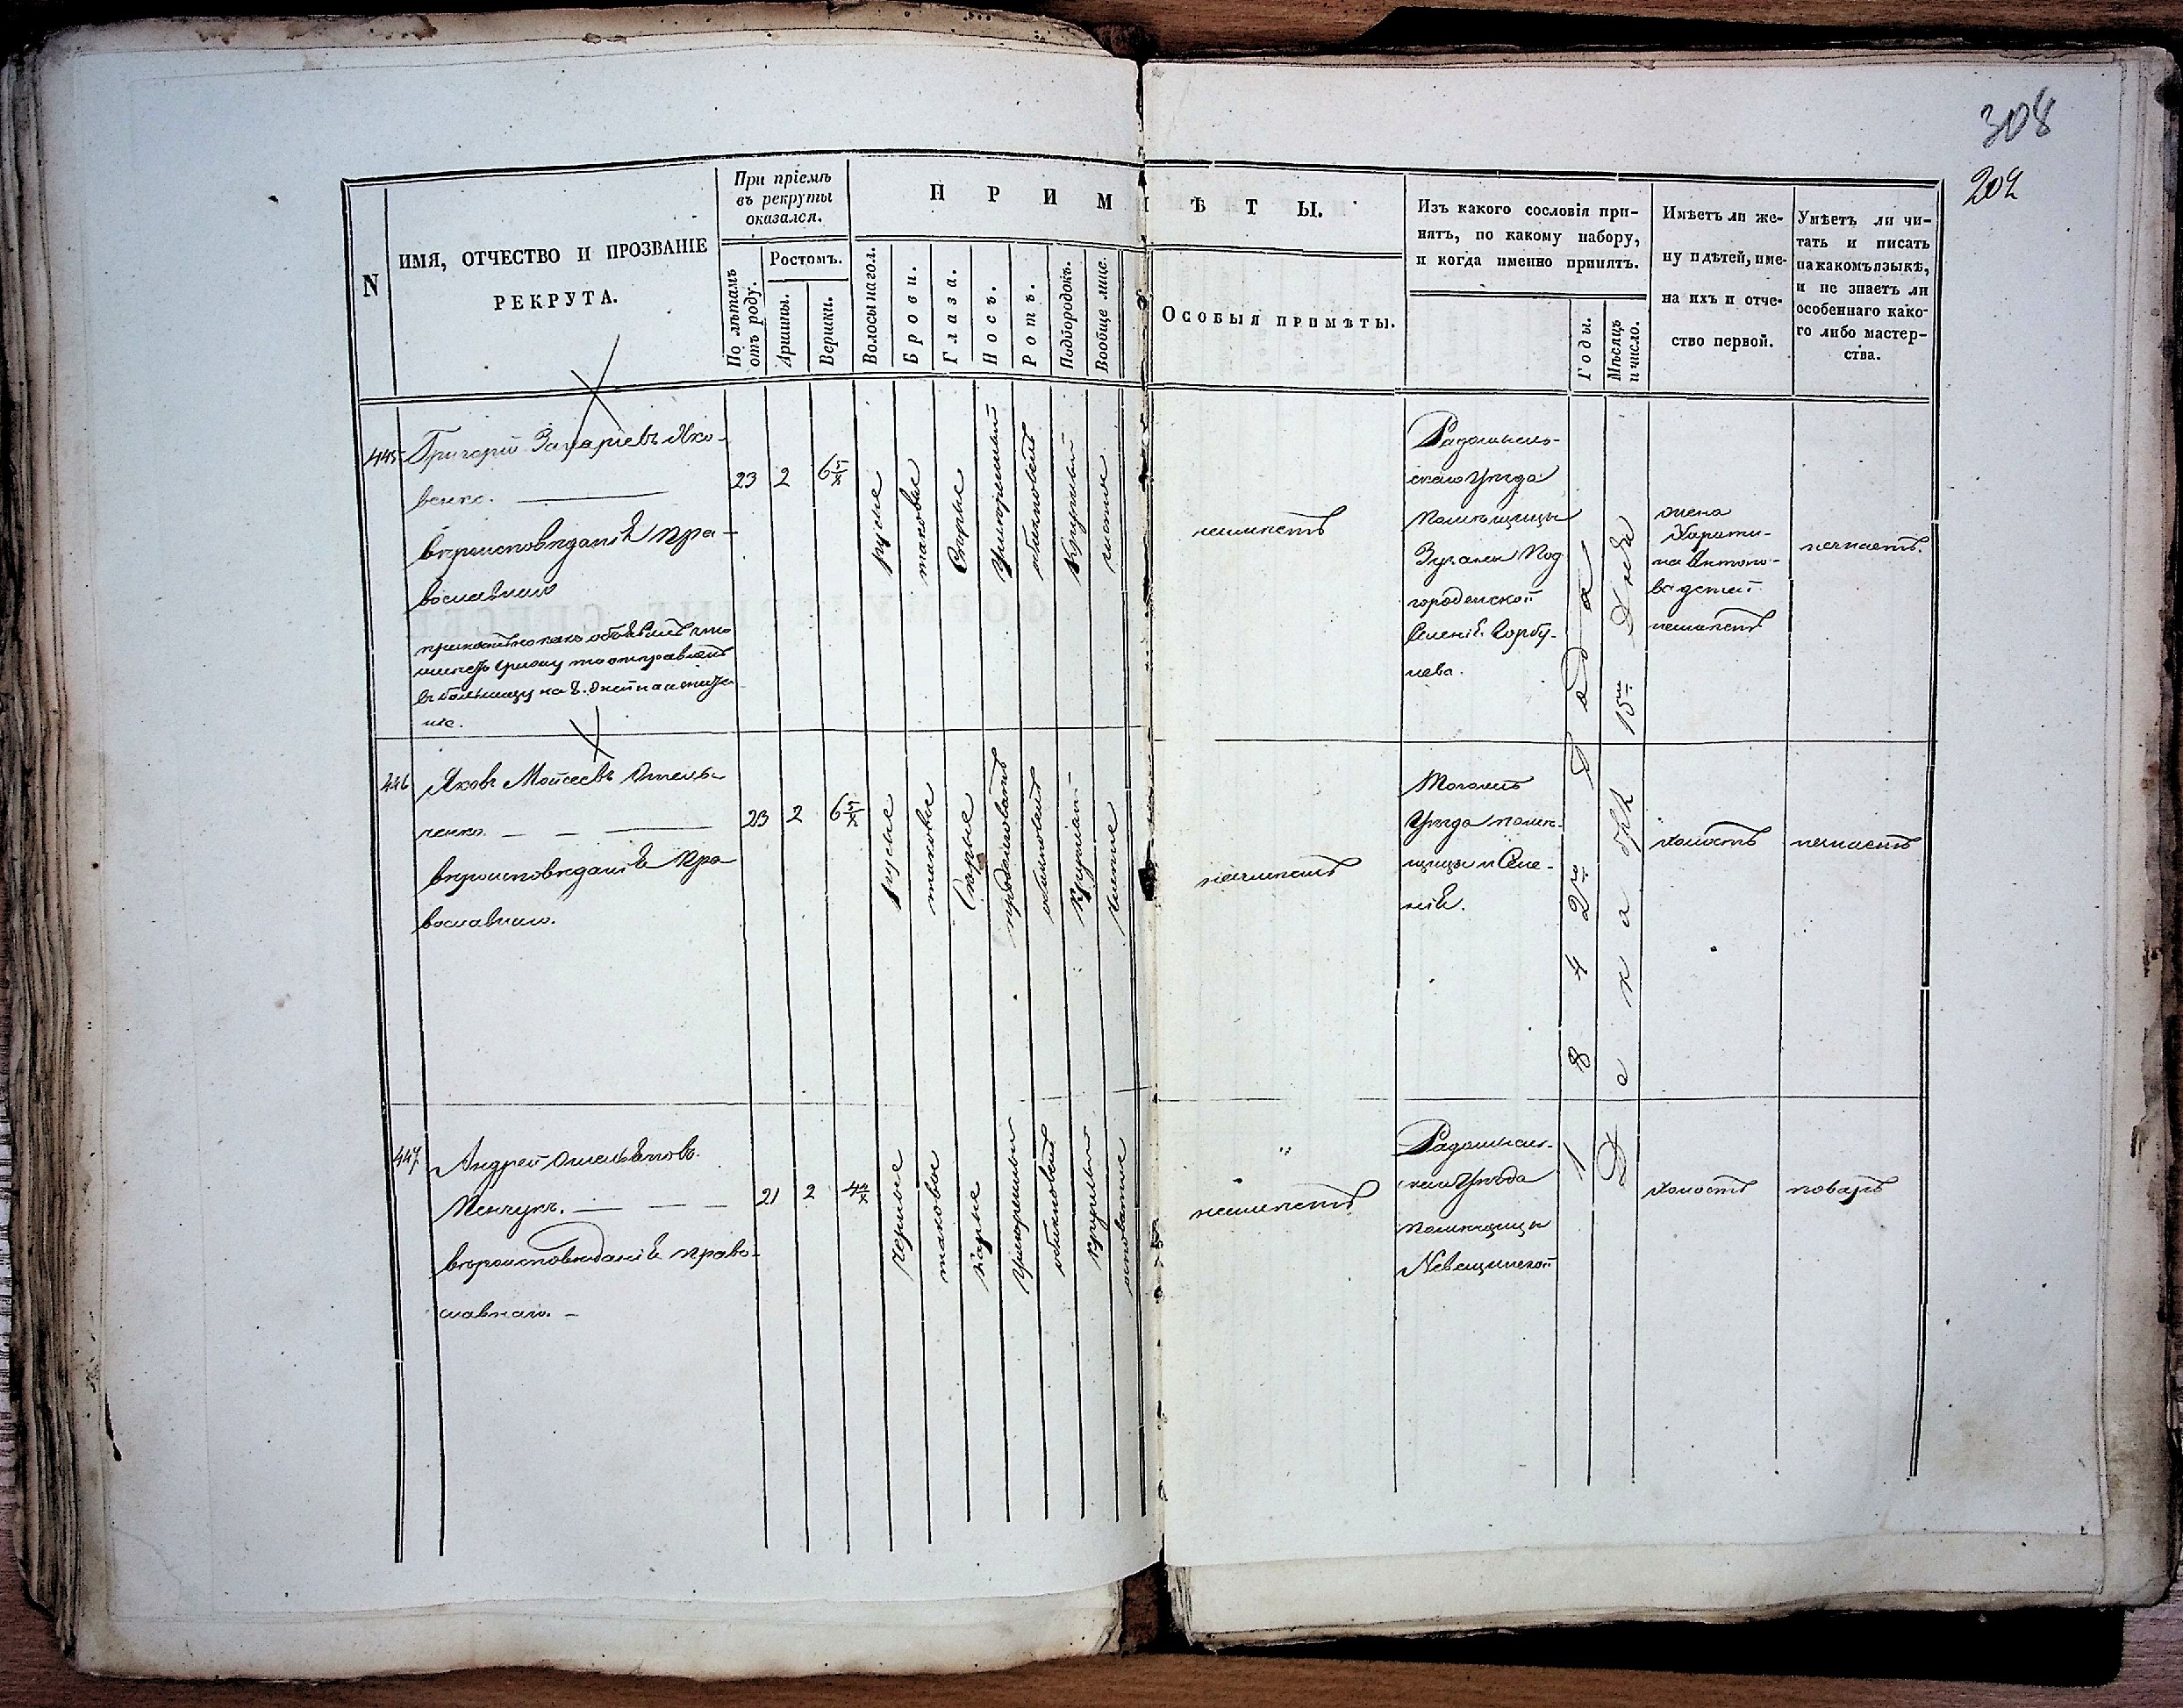 308
202
N
ИМЯ, ОТЧЕСТВО И ПРОЗВАНІЕ
РЕКРУТА.
При пріемѣ
въ рекруты
оказался.
По лѣтамъ
отъ роду.
Ростомъ.
Аршины.
Вершки.
ПРИМѢТЫ.
Волосы на гол.
Брови.
Глаза.
Носъ.
Ротъ.
Подбородокъ.
Вообще лице.
ОСОБЫЯ ПРИМѢТЫ.
Изъ какого сословія при-
нятъ, по какому набору,
и когда именно принятъ.
Годы.
Мѣсяцъ
и число.
Имѣетъ ли же-
ну и дѣтей, име-
на ихъ и отче-
ство первой.
Умѣетъ ли чи-
тать и писать
на какомъ языкѣ,
и не знаетъ ли
особеннаго како-
го либо мастер-
ства.
445
Григорій Захаріевъ Яко-
венко.
вѣроисповѣданія Пра-
вославнаго
23
2
6 5/8
русые
таковые
Сѣрые
Умѣренный
обыкновенъ
Круглый
чистое
неимѣетъ
Радомысль-
скаго Уѣзда
Помѣщицы
Под
городенской
Селенія Горбу-
лева.
жена
Харити-
на Антоно-
ва дѣтей
неимѣетъ
незнаетъ.
1842го Года
Декабря 15го Дня
446
Яковъ Мойсеевъ Омель-
ченко.
вѣроисповѣданія Пра
вославнаго.
23
2
6 5/8
русые
таковые
Сѣрые
продолговатъ
обыкновенъ
Круглый
Чистое
неимѣетъ
Тогожъ
Уѣзда помѣ-
щицы и Селе-
нія.
холостъ
незнаетъ
447
Андрей Омельяновъ
вѣроисповѣданія право-
славнаго.
21
2
4 4/8
Черные
таковые
Каріе
Умѣренный
обыкновенъ
Круглый
неимѣетъ
Радомысль-
скаго Уѣзда
помѣщицы
холостъ
поваръ